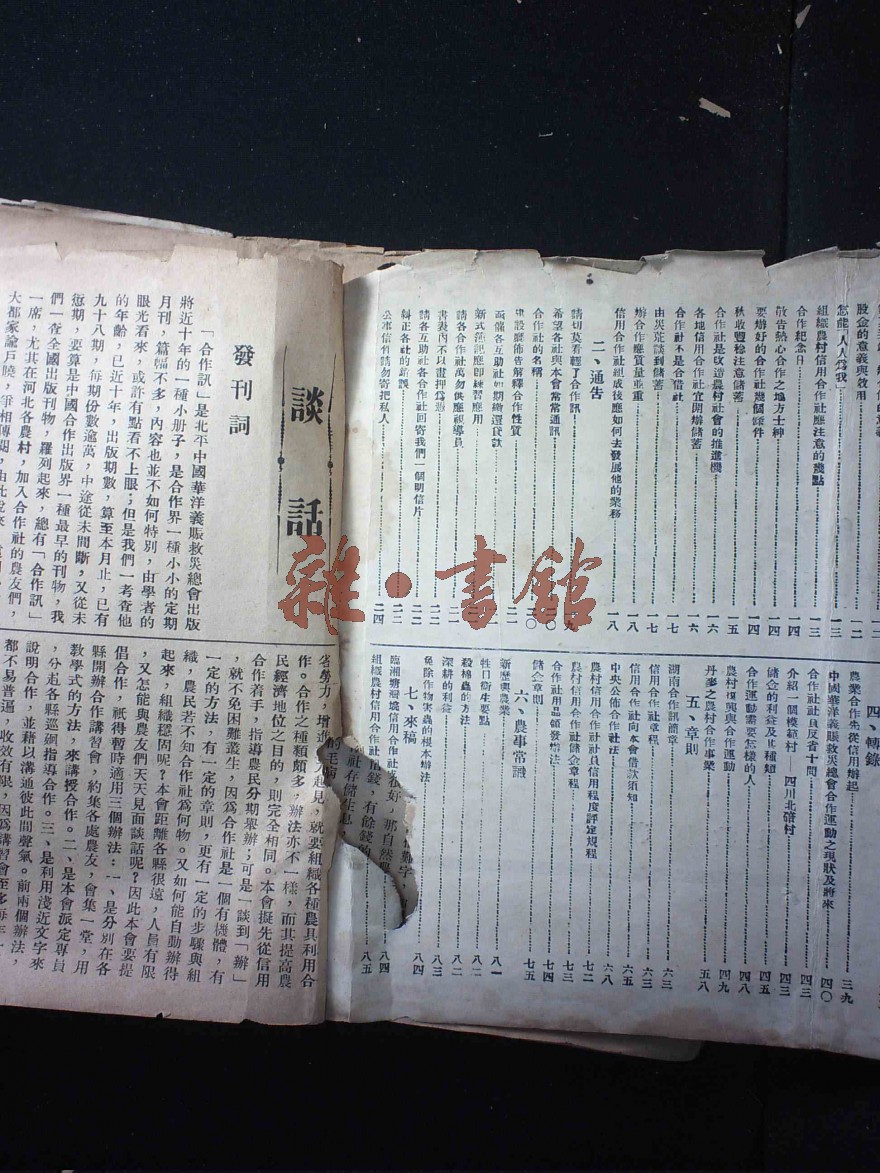 股金的意義與效用 一二
怎能「人人爲我」 一三
組織農村信用合作社應注意的幾點 一三
合作紀念日 一四
敬告熱心合作之地方士紳 一四
要辦好的合作社幾個條件 一四
秋收豐稔注意儲蓄 一五
合作社是改造農村社會的推進機 一六
各地信用合作社宜開辦儲蓄 一六
合作社不是合借社 一七
由災荒談到儲蓄 一七
辦合作應質量並重 一八
信用合作社組成後應如何去發展他的業務 一八
二、通告
請切莫看輕了合作訊
希望各社與本會常常通訊
合作社的名稱
建設廳佈告解釋合作性質 二一
西儀各互助社如期繳還貸款
新式簿記應即練習應用
請各合作社萬勿供應視導員
書表內不以畫押爲憑
請各互助社各合作社回寄我們一個明信片 二二
糾正各社的錯誤 二三
公事信件請勿寄把私人 二四
四、轉錄
農業合作先從信用辦起 三九
中國華洋義賑救災總會合作運動之現狀及將來 四〇
合作社社員反省十問 四三
介紹一個模範村——四川北碚村 四三
儲金的利益及其種類 四五
合作運動需要怎樣的人 四八
農村復興與合作運動 四九
丹麥之農村合作事業 五八
五、章則
湖南合作訊簡章 六三
信用合作社章程 六三
合作社向本會借款須知 六五
中央公佈合作社法 六八
農村信用合作社社員信用程度評定規程 七二
農村信用合作社儲金章程 七三
合作社用品領發辦法 七四
儲金章則 七五
六、農事常識
新歷與農業 八一
牲口衛生要點 八二
殺棉蟲的方法 八二
深耕的利益 八三
免除作物害蟲的根本辦法 八四
七、來稿
臨湘 信用合作社 八四
組織農村信用合作社 八五
談話
發刊詞
「合作訊」是北平中國華洋義賑救災總會出版
將近十年的一種小册子，是合作界一種小小的定期
月刊，篇幅不多，內容也並不如何特別，由學者的
眼光看來，或許有點看不上眼；但是我們一考查他
的年齡，已近十年，出版期數，算至本月止，已有
九十八期，每期份數逾萬，中途從未間斷，又從未
愆期，要算是中國合作出版界一種最早的刊物，我
們一查全國出版刊物，羅列起來，總有「合作訊」
一席，尤其在河北各農村，加入合作社的農友們，
大都家諭戶曉，爭相傳閱，由此說來
省勞力，增進 起見，就要組織各種農具利用合
作。合作之種類頗多，辦法亦不一樣，而其提高農
民經濟地位之目的，則完全相同。本會擬先從信用
合作着手，指導農民分期舉辦；可是一談到「辦」
，就不免困難叢生，因爲合作社是一個有機體，有
一定的方法，有一定的章則，更有一定的步驟與組
織，農民若不知合作社爲何物。又如何能自動辦得
起來，組織穩固呢？本會距離各縣很遠，人員有限
，又怎能與農友們天天見面談話呢？因此本會要是
倡合作，祇得暫時適用三個辦法：一、是分別在各
縣開辦合作講習會，約集各處農友，會集一堂，用
教學式的方法，來講授合作。二、是本會派定專員
，分赴各縣巡廻指導合作。三、是利用淺近文字來
說明合作，並藉以溝通彼此間聲氣。前兩個辦法，
都不易普遍，收效有限，因爲講習會至多每年一
雜·書館